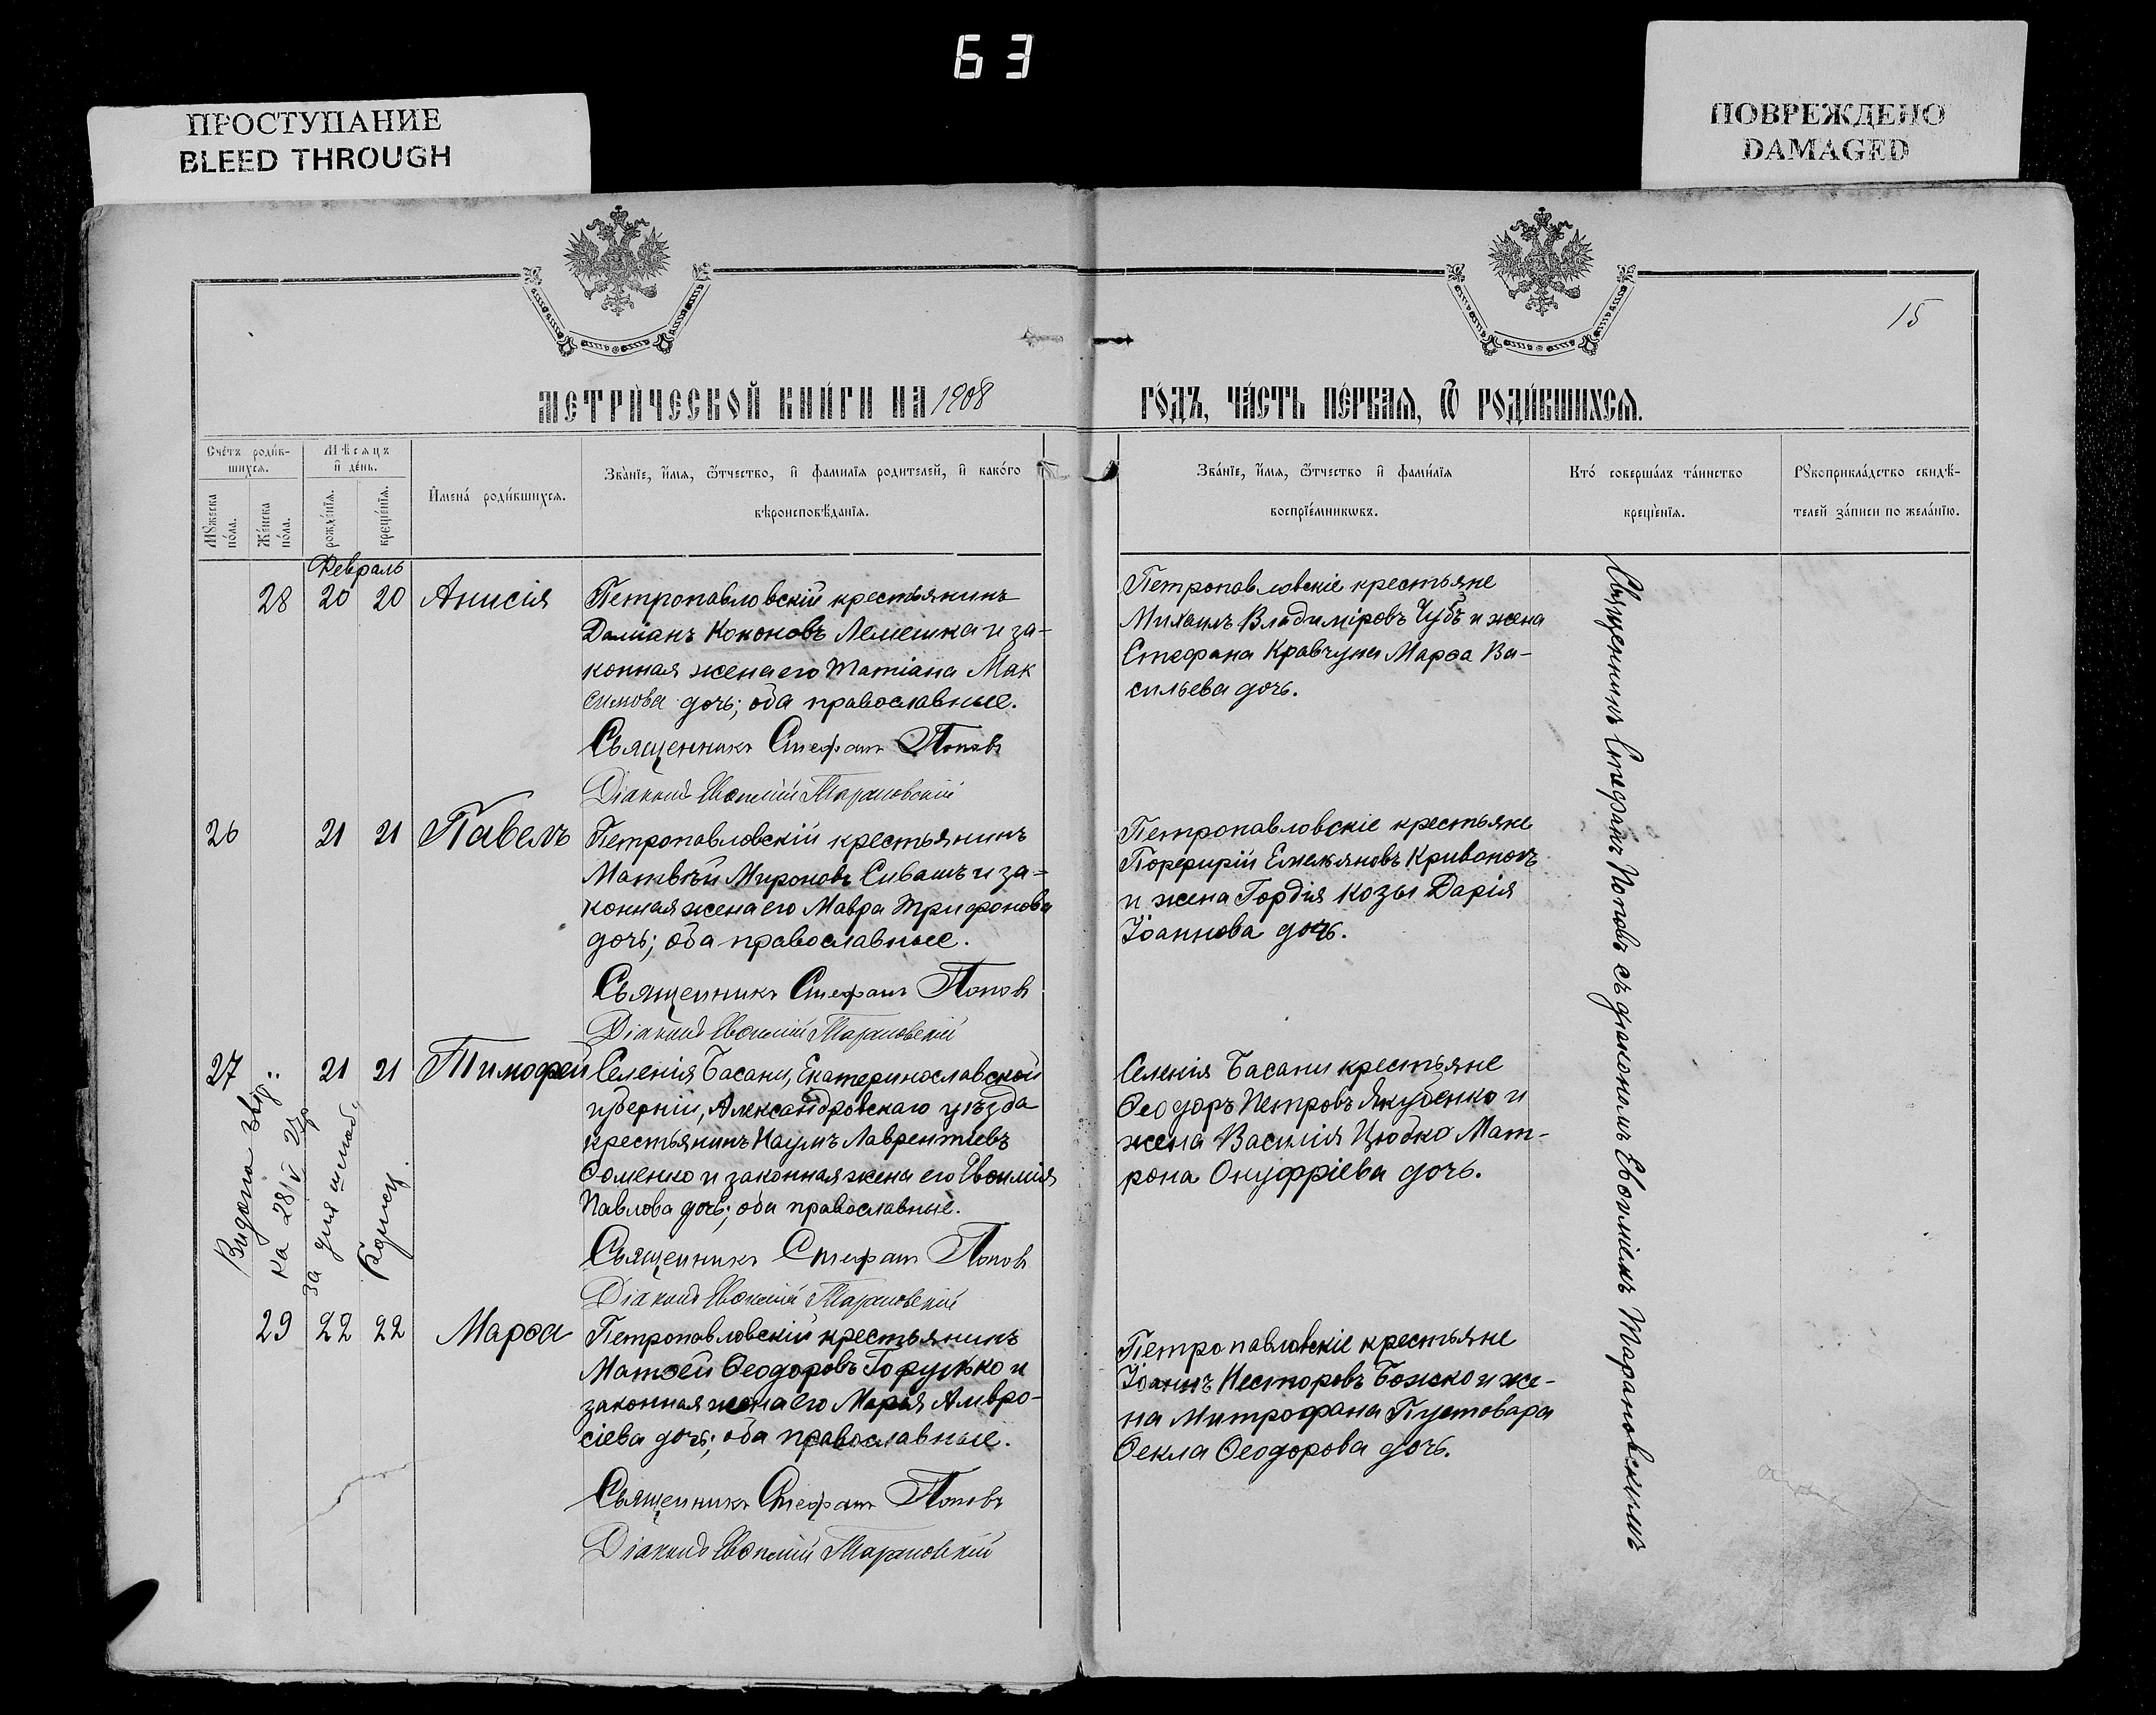 63
ПРОСТУПАНИЕ
BLEED THROUGH
ПОВРЕЖДЕНО
DAMAGED
15
МЕТРИ́ЧЕСКОЙ КНИ́ГИ НА 1908
ГО́ДЪ, ЧА́СТЬ ПЕ́РВАѦ, Ѽ РОДИ́ВШИХСѦ.
Сче́тъ роди́в-
шихсѧ.
Мꙋжеска по́ла.
Же́нска по́ла.
Мѣсѧцъ
и҆ де́нь.
рожде́нїѧ.
креще́нїѧ.
И҆мена̀ роди́вшихсѧ.
Зва́нїе, и҆мѧ, ѻ҆́тчество, и҆ фами́лїѧ роди́телей, и҆ како́го
вѣроисповѣ́данїѧ.
Зва́нїе, и҆мѧ, ѻ҆́тчество и҆ фами́лїѧ
воспрїе́мникѡвъ.
Кто̀ соверша́лъ та́инство
креще́нїѧ.
Рꙋкоприкла́дство свидѣ́-
телей за́писи по жела́нїю.
Февраль
28 20 20 Анисія
Петропавловскій крестьянинъ
Даміанъ Кононовъ Лемешка и за-
конная жена его Татіана Мак
симова дочь; оба православные.
Священникъ Стефанъ Поповъ
Діаконъ Евѳимій Тарановскій
Петропавловскіе крестьяне
Михаилъ Владиміровъ Чубъ и жена
Стефана Кравчуна Марѳа Ва-
сильева дочь.
26 21 21 Павелъ
Петропавловскій крестьянинъ
Матвѣй Мироновъ Сивашъ и за-
конная жена его Мавра Трифонова
дочь; оба православные.
Священникъ Стефанъ Поповъ
Діаконъ Евѳимій Тарановскій
Петропавловскіе крестьяне
Порфирій Емельяновъ Кривоносъ
и жена Гордія Козы Дарія
Іоаннова дочь.
27 21 21 Тимофей
Селенія Басани, Екатеринославской
губерніи, Александровскаго уѣзда
крестьянинъ Наумъ Лаврентіевъ
Соменко и законная жена его Евѳимія
Павлова дочь; оба православные.
Священникъ Стефанъ Поповъ
Діаконъ Евѳимій Тарановскій
Селенія Басани крестьяне
Ѳеодоръ Петровъ Якубенко и
жена Василія Цюбко Мат-
рона Онуфріева дочь.
Видана
ка 28/ 27
за для шлюб.
29 22 22 Марѳа
Петропавловскій крестьянинъ
Матѳей Ѳеодоровъ Горулько и
законная жена его Марія Амвро-
сіева дочь; оба православные.
Священникъ Стефанъ Поповъ
Діаконъ Евѳимій Тарановскій
Петропавловскіе крестьяне
Іоаннъ Несторовъ Божко и же-
на Митрофана Пустовара
Ѳекла Ѳеодорова дочь.
Священникъ Стефанъ Поповъ съ діакономъ Евѳиміемъ Тарановскимъ